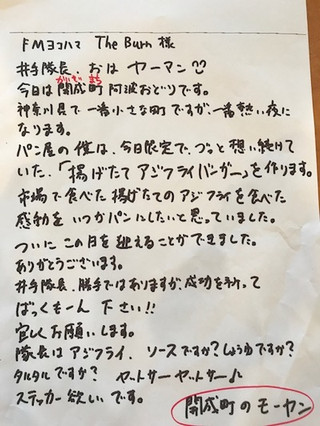 FMヨコハマ The Burn 様
井手隊長、おはヤーマン
かいせいまち
今日は開成町阿波おどりです。
神奈川県で一番小さな町ですが、一番熱い夜に
なります。
パン屋の僕は、今日限定で、づっと想い続けて
いた、「揚げたてアジフライバーガー」を作ります。
市場で食べた揚げたてのアジフライを食べた
感動をいつかパンにしたいと思っていました。
ついにこの日を迎えることができました。
ありがとうございます。
井手隊長、勝手ではありますが、成功を祈って
ばっくもーん 下さい!!
宜しくお願いします。
隊長はアジフライ、ソースですか?しょうゆですか?
タルタルですか? ヤットサーヤットサー♪
ステッカー欲しいです。
開成町のモーヤン